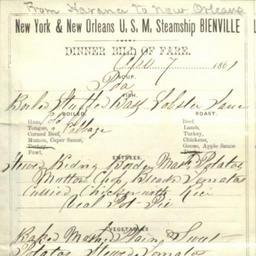 From Havana to New Orleans
New York & New Orleans U. S. M. Steamship BIENVILLE
DINNER BILL OF FARE.
April 7 1861
SOUP.
Pea
Boiled Stuffed Bass Lobster Sauce
BOILED. ROAST.
Ham, Beef,
Tongue, Lamb,
Corned Beef, Cabbage Turkey,
Mutton, Caper Sauce, Chickens,
Goose, Apple Sauce
ENTREES.
Stewed Kidney Mash Potatos
Mutton Chop Breaded Tomatos
Curried Chicken with Rice
Veal Pot Pie
VEGETABLES
Baked Mashed Plain Sweet
Potatos Stewed Tomatos